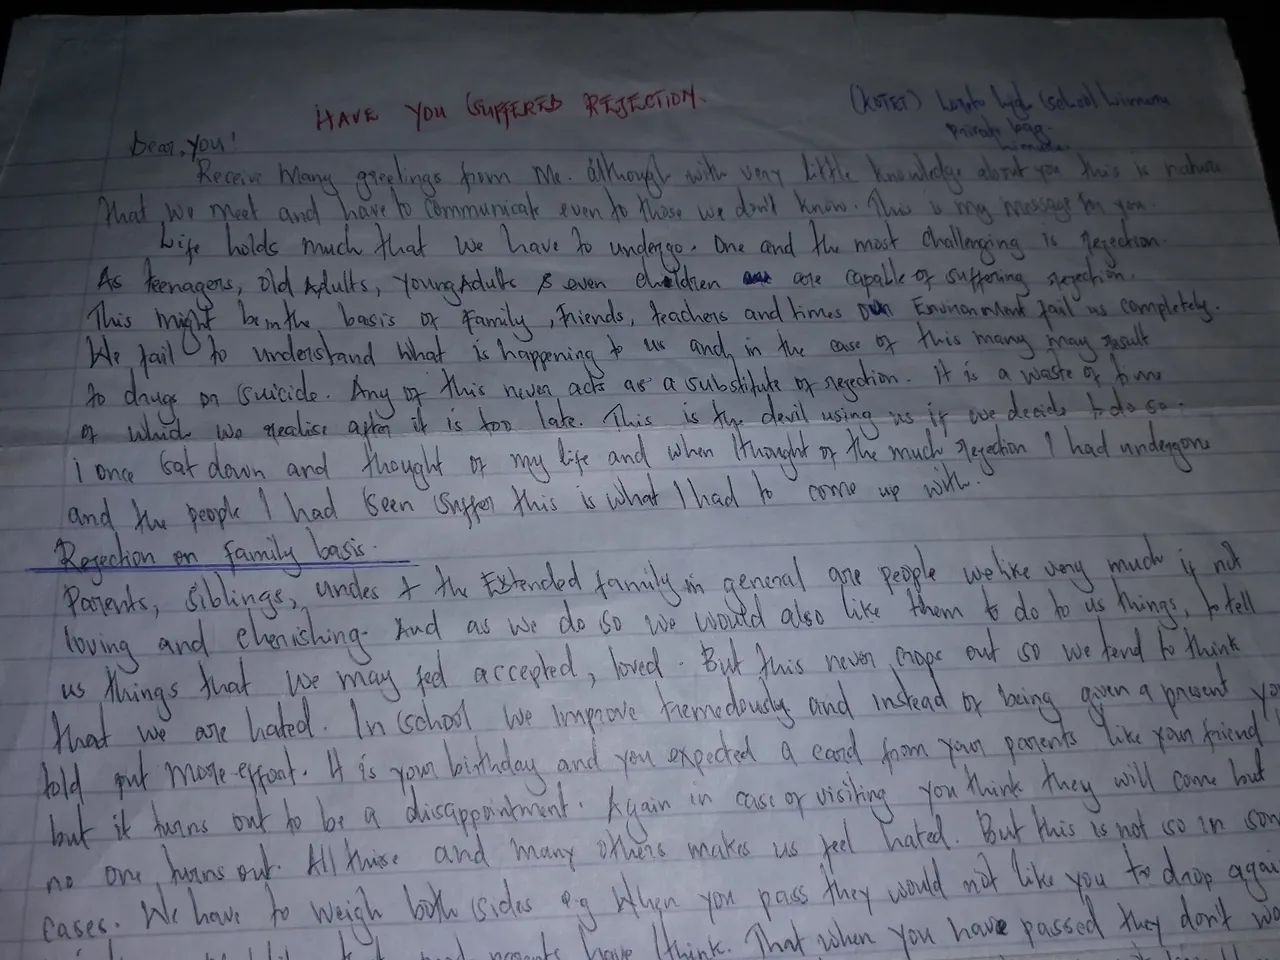 HAVE YOU SUFFERED REJECTION.
(KOTET) Loreto high school Limuru
private bag
Limuru.
Dear, you!
Receive Many greetings from Me. although with very little knowledge about you this is natural
that we meet and have to communicate even to those we don't know. This is my message for you.
Life holds much that we have to undergo. One and the most challenging is rejection.
As teenagers, old Adults, young Adults & even children are capable of suffering rejection.
This might be in the basis of family, friends, teachers and times our Environment fail us completely.
We fail to understand what is happening to us and in the case of this many may result
to drugs or suicide. Any of this never acts as a substitute of rejection. It is a waste of time
of which we realise after it is too late. This is the devil using us if we decide to do so.
i once sat down and thought of my life and when I thought of the much rejection I had undergone
and the people I had seen suffer this is what I had to come up with.
Rejection on family basis.
Parents, siblings, uncles & the Extended family in general are people we like very much if not
loving and cherishing. And as we do so we would also like them to do to us things, to tell
us things that we may feel accepted, loved. But this never crops out so we tend to think
that we are hated. In school we improve tremedously and instead of being given a present you
told put more effort. It is your birthday and you expected a card from your parents like your friend
but it turns out to be a disappointment. Again in case of visiting you think they will come but
no one turns out. All these and many others makes us feel hated. But this is not so in som
cases. We have to weigh both sides e.g When you pass they would not like you to drop agai
parents have I think. That when you have passed they don't wa